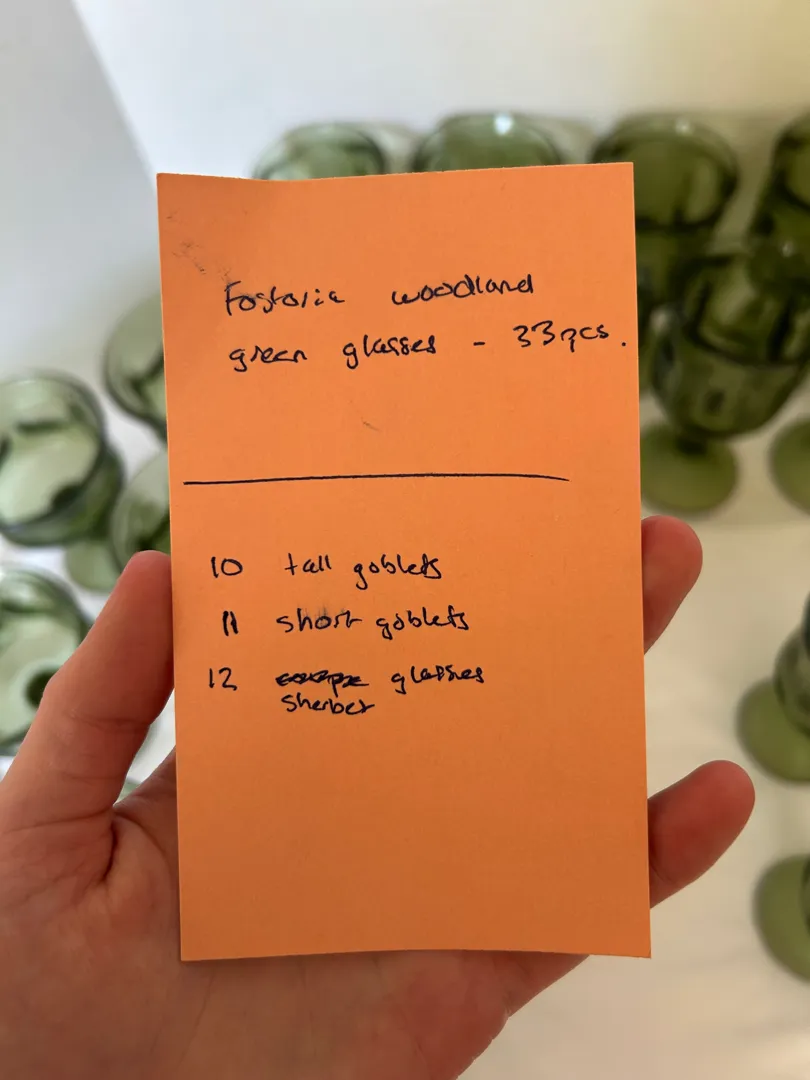 Fostoria woodland
green glasses - 33 pcs.
10 tall goblets
11 short goblets
12 glasses
sherbet